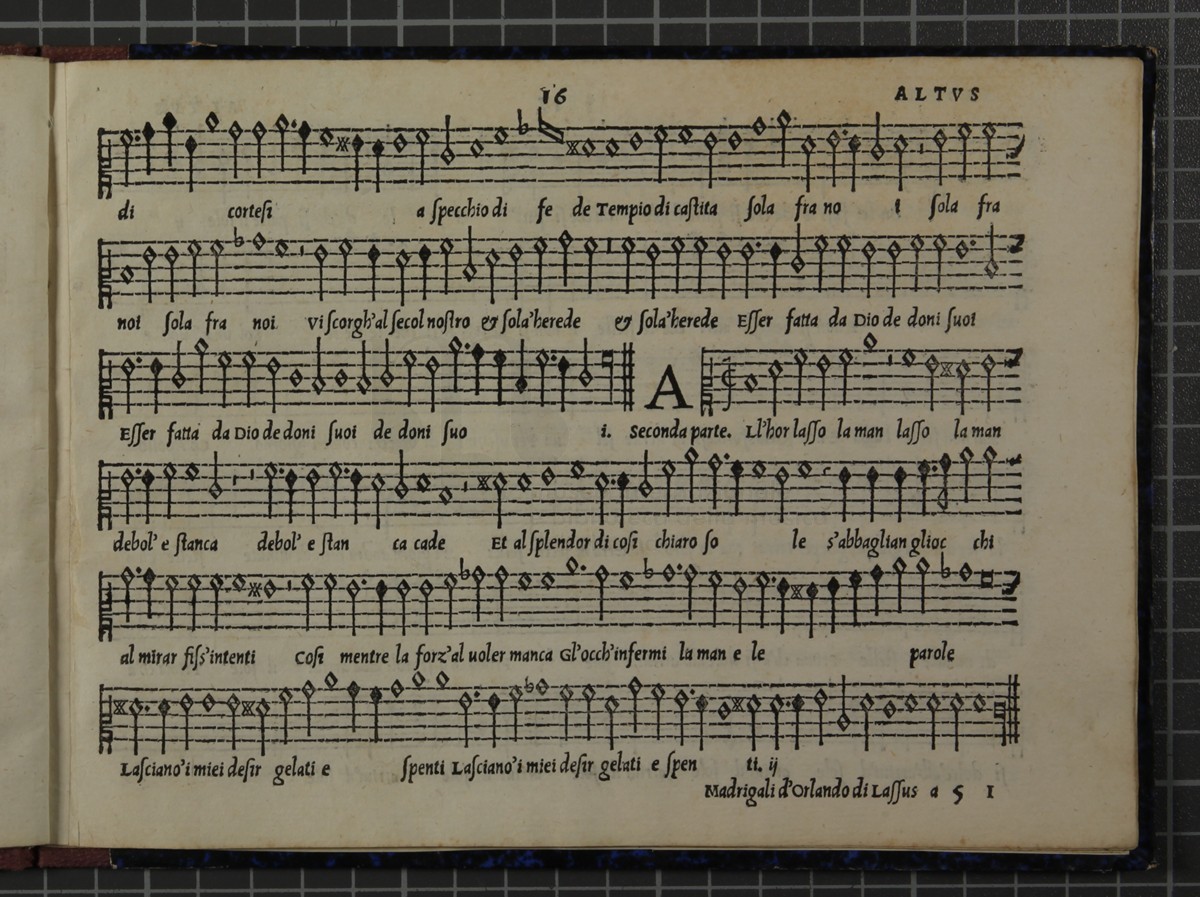 16 ALTVS
di cortesi a specchio di fe de Tempio di castita sola fra no i sola fra
noi sola fra noi Vi scorgh'al secol nostro & sola'herede & sola'herede Esser fatta da Dio de doni suoi
Esser fatta da Dio de doni suoi de doni suo i. Seconda parte. ALl'hor lasso la man lasso la man
debol' e stanca debol' e stan ca cade Et al splendor di cosi chiaro so le s'abbaglian glioc chi
al mirar fiss'intenti Cosi mentre la forz'al uoler manca Gl'occh'infermi la man e le parole
Lasciano'i miei desir gelati e spenti Lasciano'i miei desir gelati e spen ti. ij
Madrigali d'Orlando di Lassus a 5 I